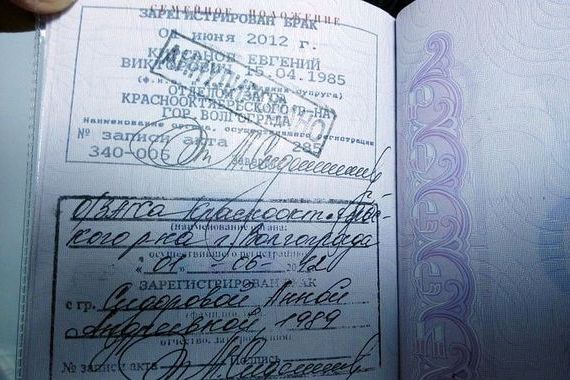 СЕМЕЙНОЕ ПОЛОЖЕНИЕ
ЗАРЕГИСТРИРОВАН БРАК
ИЮНЯ 2012 г.
ЕВГЕНИЙ
15.04.1985
ОТДЕЛОМ ЗАГСА
КРАСНООКТЯБРЬСКОГО Р-НА
ГОР. ВОЛГОГРАДА
Наименование органа, осуществившего регистрацию
№ записи акта 285
340-006
ОЗАГСа Краснооктябрьс-
кого р-на г. Волгограда
(наименование органа,
осуществившего регистрацию)
"01" 06
ЗАРЕГИСТРИРОВАН БРАК
с гр. Сидоровой Анной
Андреевной, 1989
отчество, дата рождения
№ записи акта Подпись